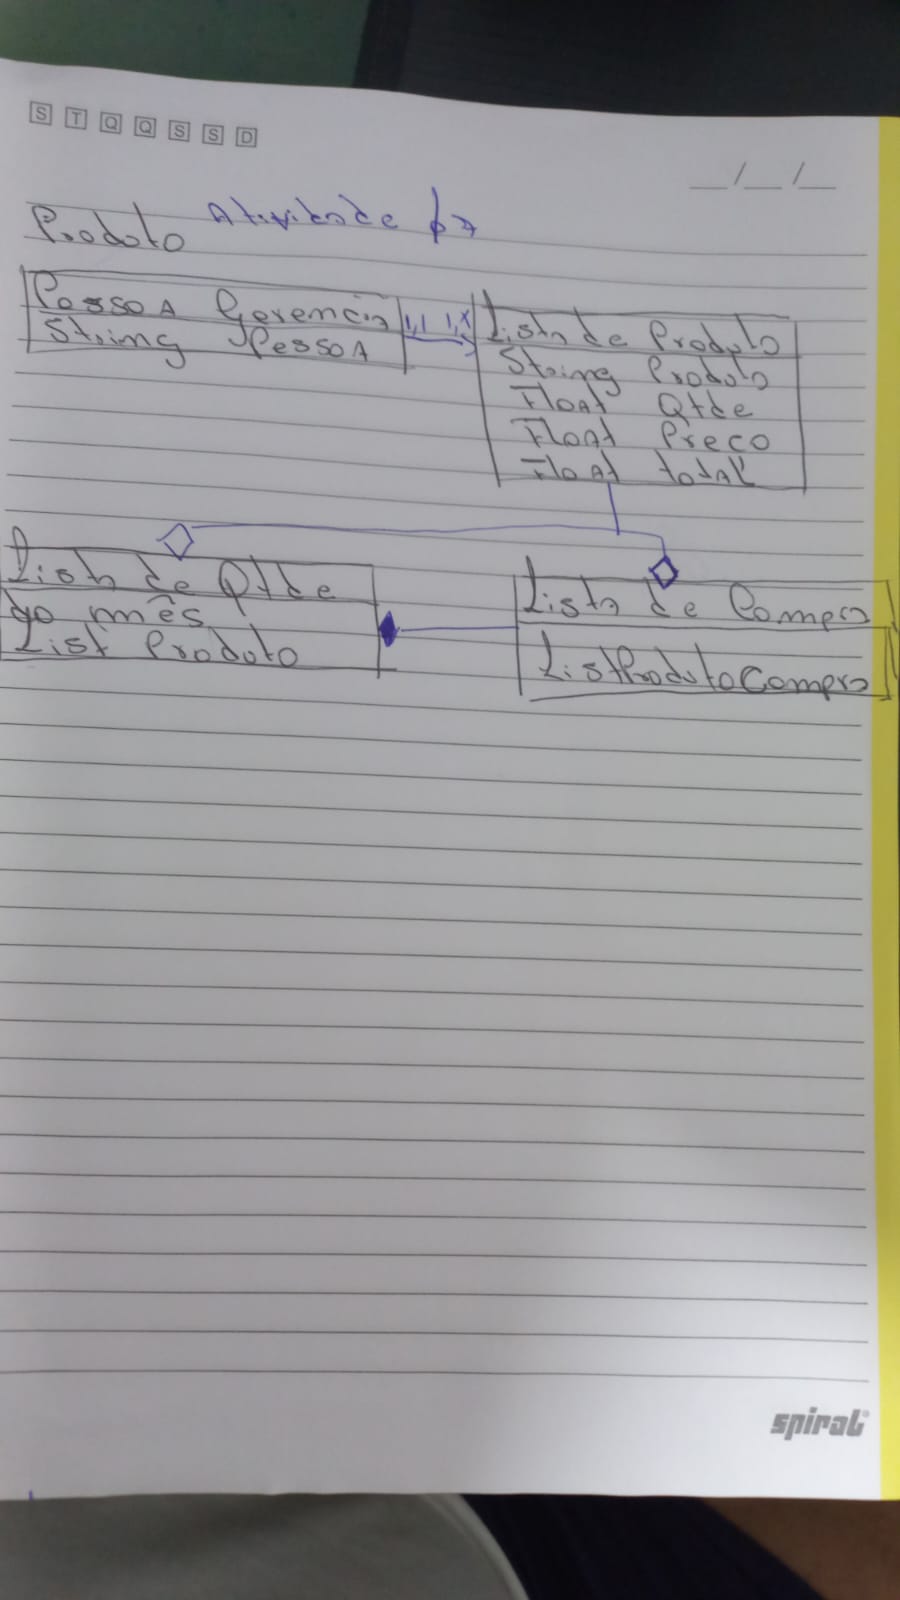 S T Q Q S S D
__/__/__
Atividade 07
Produto
Pessoa Gerencia
String Pessoa
1,1 1,*
Lista de Produto
String Produto
Float Qtde
Float Preco
Float total
Lista de Qtde
do mês
List Produto
Lista de Compra
ListProdutoCompra
spiral